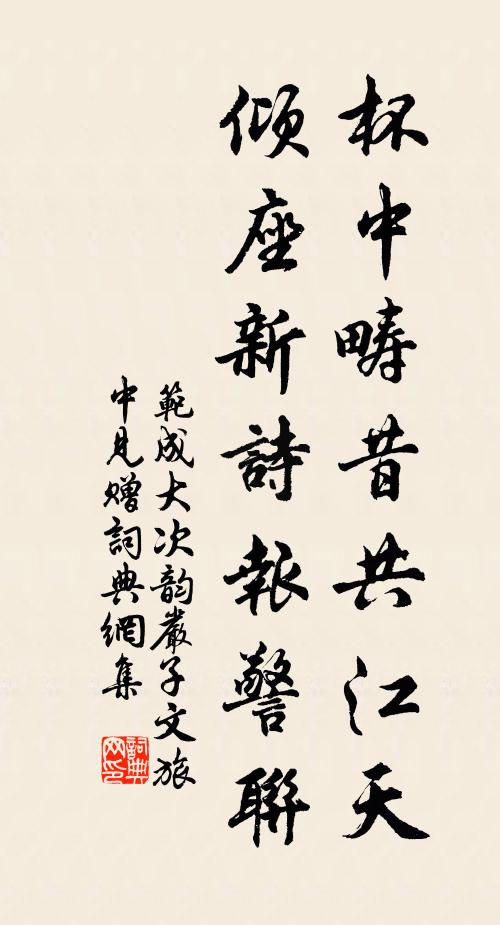 杯中疇昔共江天
傾座新詩報警聯
範成大次韵嚴子文旅
中見贈詞典網集
詞典
网印